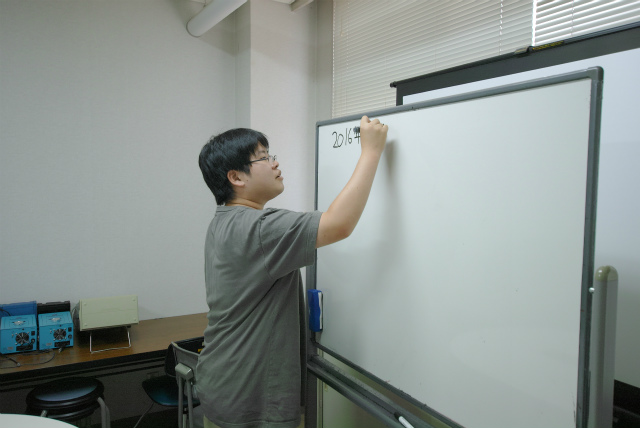 2016年